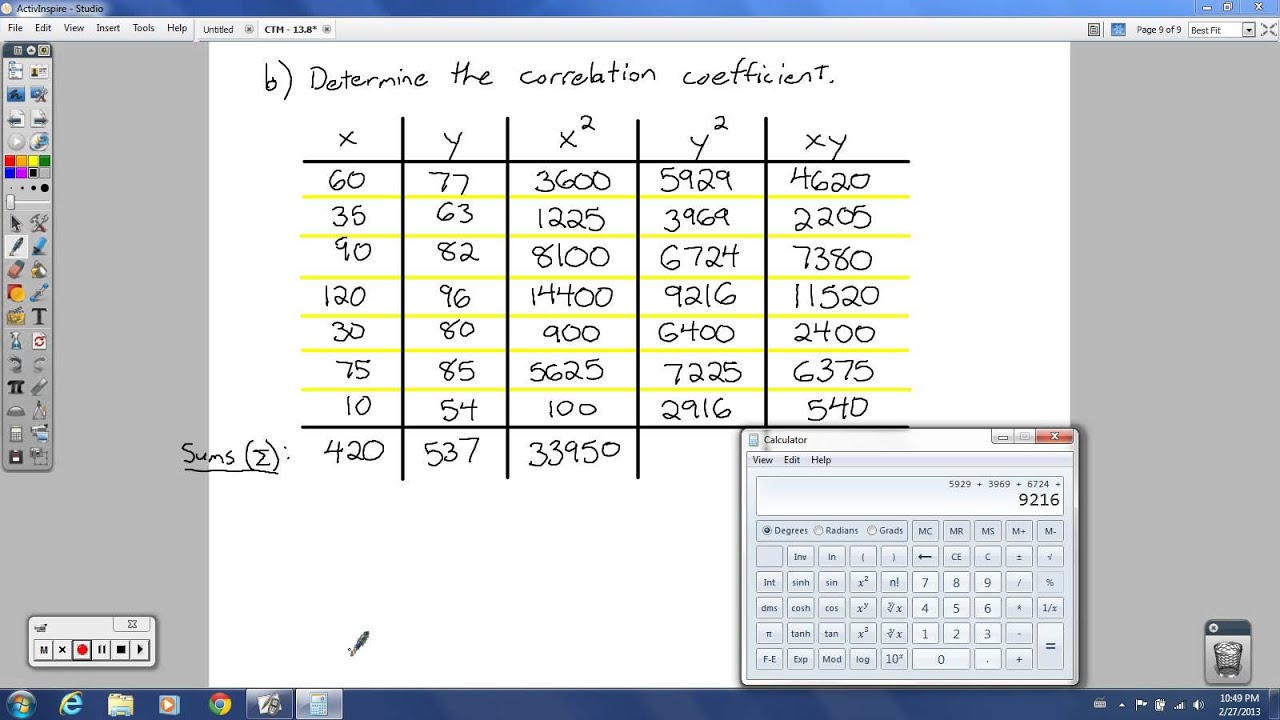 ActivInspire - Studio
File Edit View Insert Tools Help Untitled CTM - 13.8* Page 9 of 9 Best Fit
b) Determine the correlation coefficient.
x y x² y² xy
60 77 3600 5929 4620
35 63 1225 3969 2205
90 82 8100 6724 7380
120 96 14400 9216 11520
30 80 900 6400 2400
75 85 5625 7225 6375
10 54 100 2916 540
Sums (Σ): 420 537 33950
Calculator
View Edit Help
5929 + 3969 + 6724 +
9216
Degrees Radians Grads MC MR MS M+ M-
Inv ln ( ) ← CE C ± √
Int sinh sin x² n! 7 8 9 / %
dms cosh cos xʸ ʸ√x 4 5 6 * 1/x
π tanh tan x³ ³√x 1 2 3 - =
F-E Exp Mod log 10ˣ 0 . +
M
T
π
10:49 PM
2/27/2013